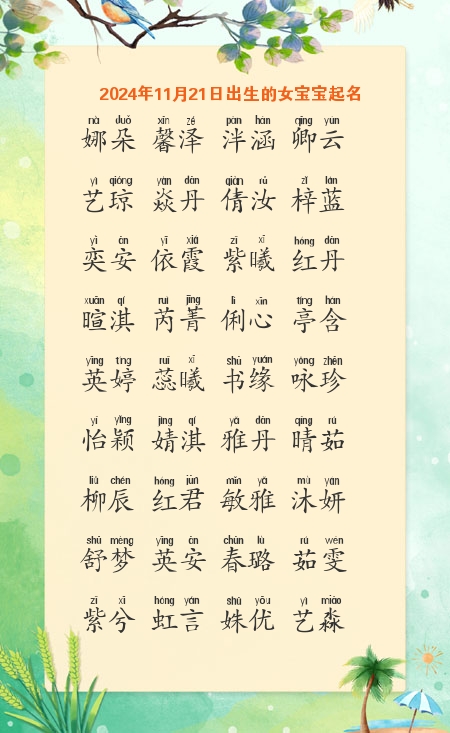 2024年11月21日出生的女宝宝起名
nà duǒ xīn zé pàn hán qīng yún
娜朵 馨泽 泮涵 卿云
yì qióng yàn dān qiàn rǔ zǐ lán
艺琼 焱丹 倩汝 梓蓝
yì ān yī xiá zǐ xī hóng dān
奕安 依霞 紫曦 红丹
xuān qí ruì jīng lì xīn tíng hán
暄淇 芮菁 俐心 亭含
yīng tíng ruǐ xī shū yuán yǒng zhēn
英婷 蕊曦 书缘 咏珍
yí yǐng jìng qí yǎ dān qíng rú
怡颖 婧淇 雅丹 晴茹
liǔ chén hóng jūn mǐn yǎ mù yán
柳辰 红君 敏雅 沐妍
shū mèng yīng ān chūn lù rú wén
舒梦 英安 春璐 茹雯
zǐ xī hóng yán shū yōu yì miǎo
紫兮 虹言 姝优 艺淼